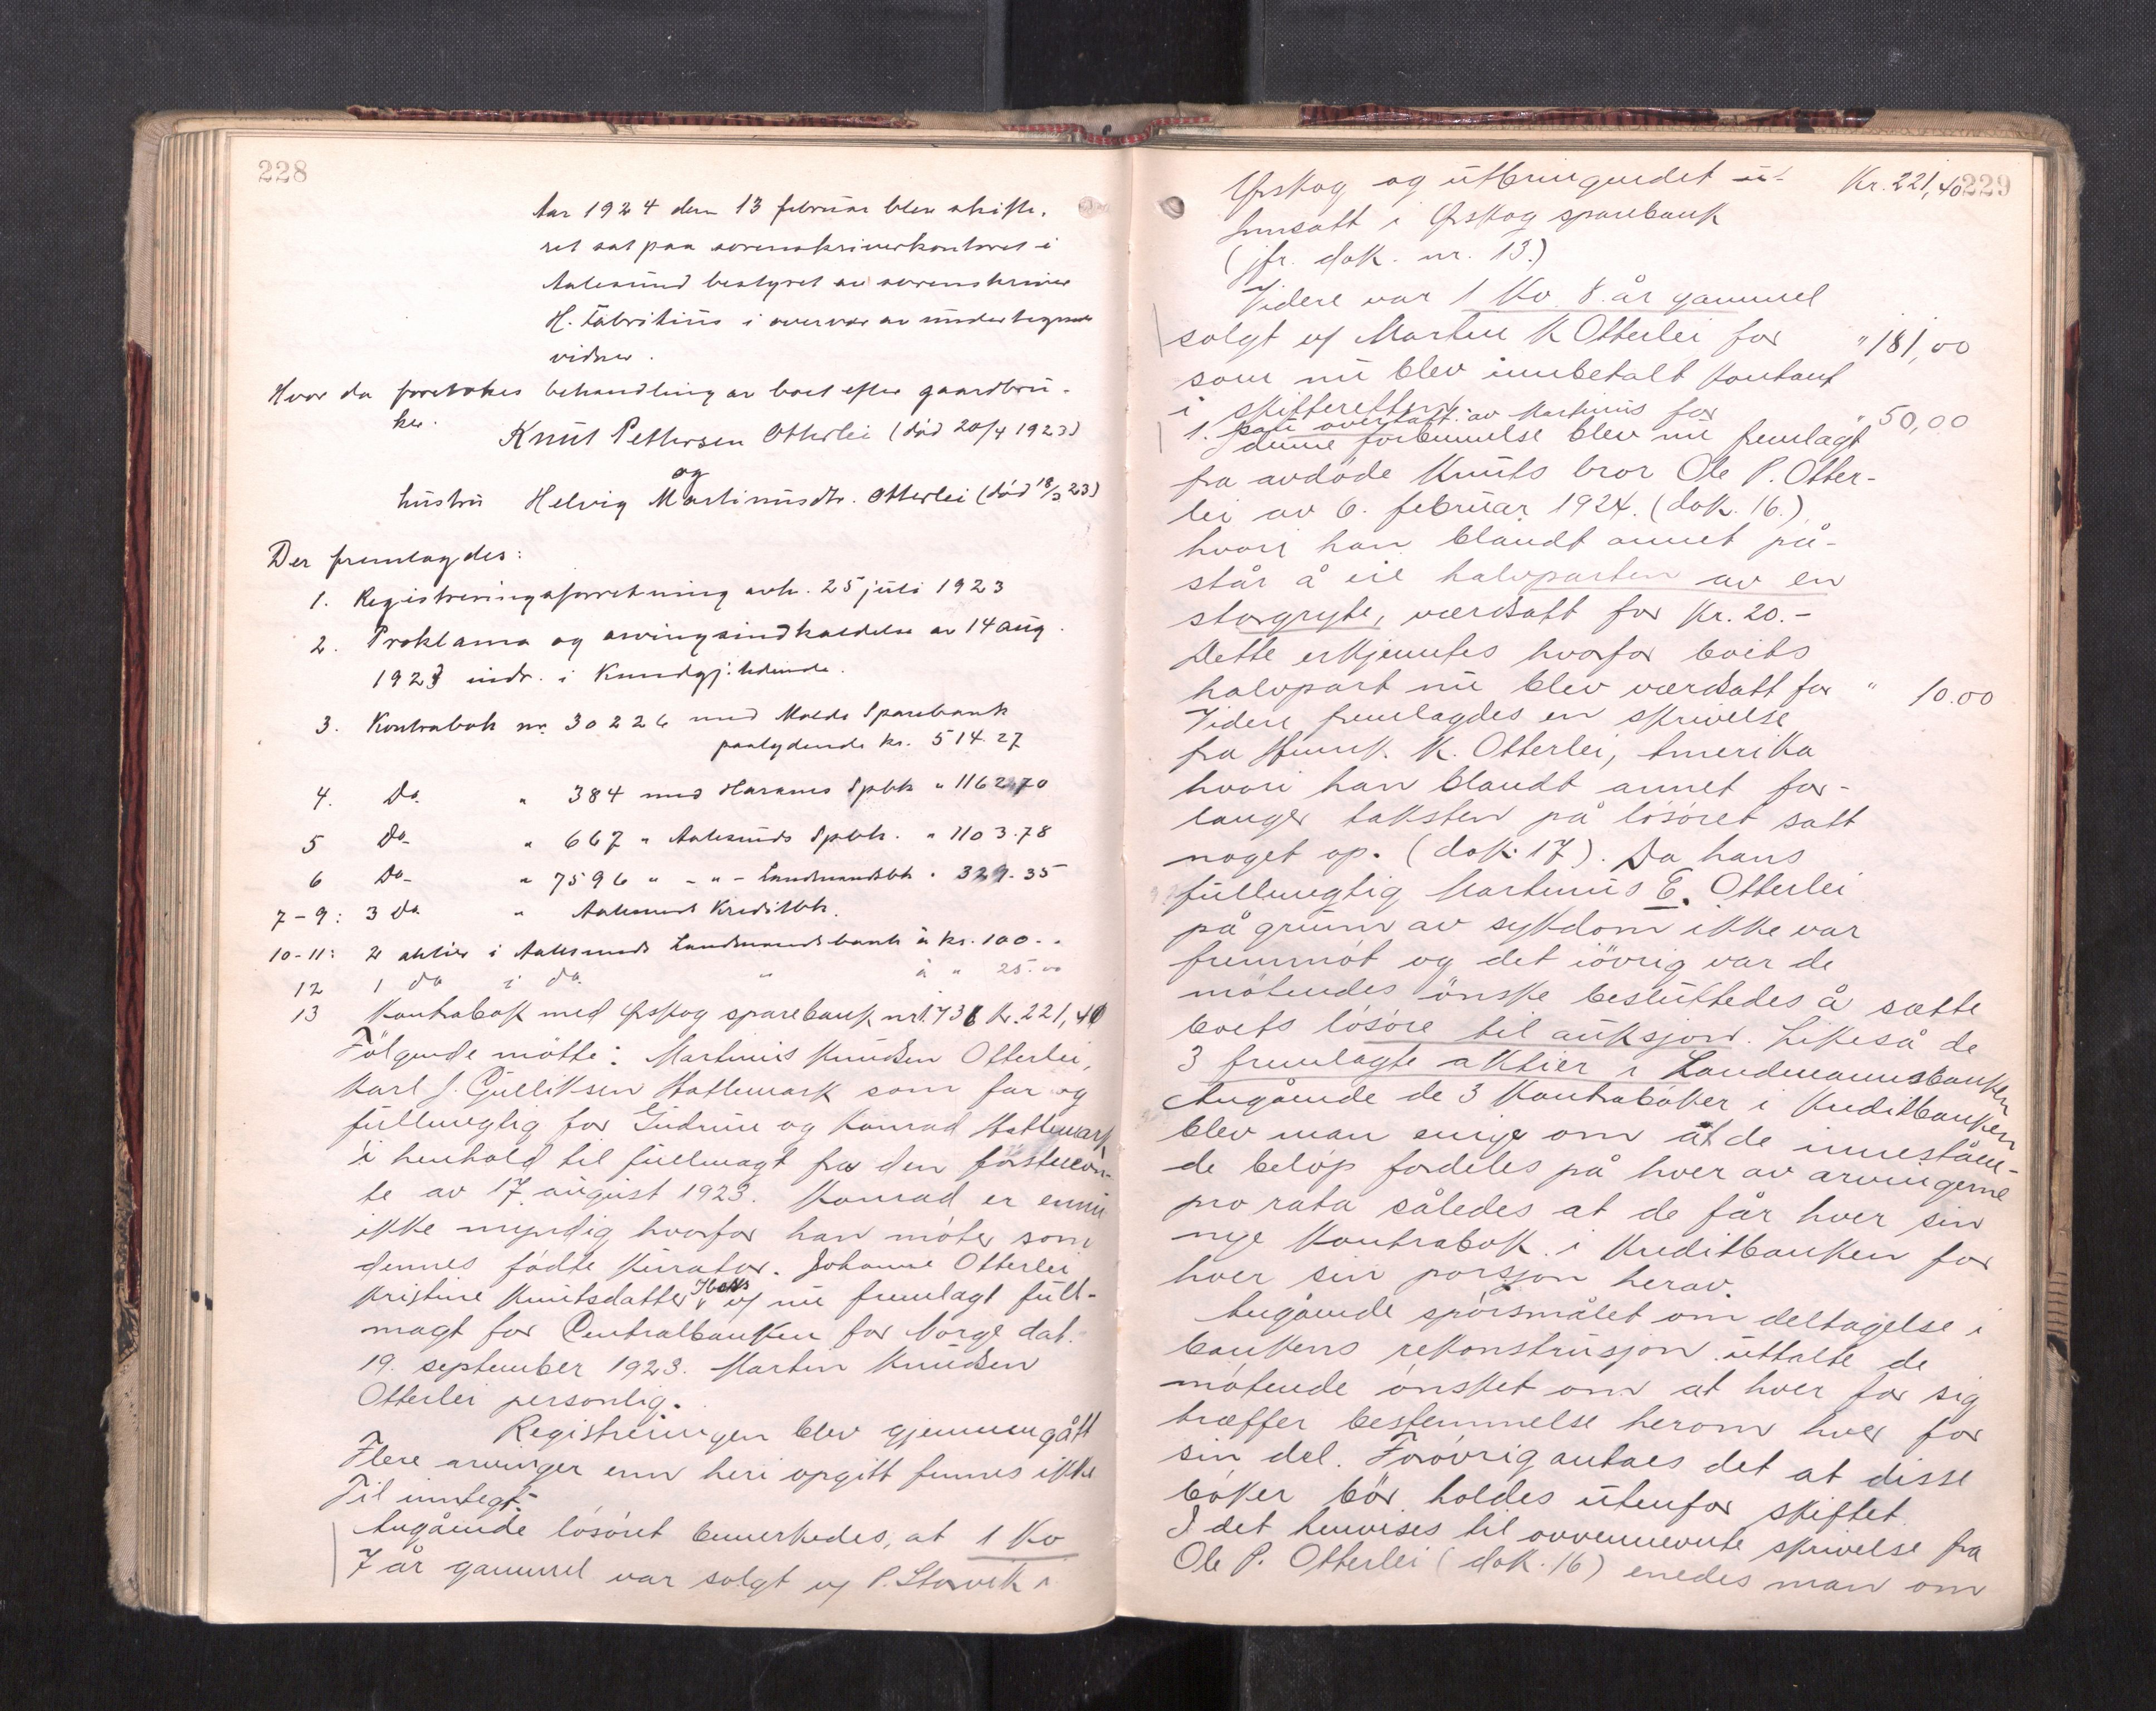 228
Aar 1924 den 13 februar blev skifte-
ret sat paa sorenskriverkontoret i
Aalesund bestyret av sorenskriver
H. Fabritius i overvær av undertegnede
vidner.
Hvor da foretokes behandling av boet efter gaardbru-
ker.
Knut Pettersen Otterlei (død 20/4 1923)
og
hustru Helvig Martinusdtr. Otterlei (død 18/3 23)
Der fremlagdes:
1. Registreringsforretning avh. 25 juli 1923
2. Proklama og arvingsindkaldelse av 14 aug.
1923 indr. i Kundgj:tidende.
3. Kontrabok nr. 30226 med Molde Sparebank
paalydende kr. 514.27
4. Do. " 384 med Harams Spbk " 1162,70
5 Do - " 667 " Aalesunds Spbk. " 1103.78
6 Do - " 7596 " - " - Landmandsbk " 329.35
7-9: 3 Do. " Aalesunds Kreditbk.
10-11: 2 aktier i Aalesunds Landmandsbank à kr. 100. -
12 1 do i do. " à " 25.00
13 Kontrabok med Ørskog sparebank nr. 1731 kr. 221,40
Følgende møtte: Martinus Knudsen Otterlei,
Karl J. Gulliksen Hatlemark som far og
fullmegtig for Gudrun og Konrad Hatlemark
i henhold til fullmagt fra den førstnevn-
te av 17 august 1923. Konrad er ennu
ikke myndig hvorfor han møter som
dennes fødte kurator. Johanne Otterlei
Kristine Knutsdatter v/ nu fremlagt full-
magt for Centralbanken for Norge dat.
19. september 1923. Martin Knudsen
Otterlei personlig.
Registreringen blev gjennemgått
Flere arvinger enn heri opgitt finnes ikke
Til inntegt:
Angående løsøret bemerkedes, at 1 Ko
7 år gammel var solgt v/ P. Storvik i
229
Ørskog og utbringendet Kr. 221,40
innsatt i Ørskog sparebank
(jfr. dok. nr. 13.)
Videre var 1 Ko 8 år gammel
solgt v/ Martin K Otterlei for " 181,00
som nu blev innbetalt kontant
i skifteretten.
1. overtatt av Martinus for " 50,00
I denne forbinnelse blev nu fremlagt
fra avdøde Knuts bror Ole P. Otter-
lei av 6. februar 1924. (dok. 16.)
hvori han blandt annet på-
står å eie halvparten av en
storgryte, værdsatt for Kr. 20.-
Dette erkjentes hvorfor boets
halvpart nu blev værdsatt for " 10.00
Videre fremlagdes en skrivelse
fra K. Otterlei, Amerika
hvori han blandt annet for-
langer taksten på løsøret satt
noget op. (dok. 17). Da hans
fullmegtig Martinus E. Otterlei
på grunn av sykdom ikke var
fremmøt og det iøvrig var de
møtendes ønske besluttedes å sætte
boets løsøre til auksjon. Likeså de
3 fremlagte aktier i Landmannsbanken
Angående de 3 Kontrabøker i Kreditbanken
blev man enige om at de inneståen-
de beløp fordeles på hver av arvingerne
pro rata således at de får hver sin
nye Kontrabok i Kreditbanken for
hver sin porsjon herav.
Angående spørsmålet om deltagelse i
bankens rekonstrusjon uttalte de
møtende ønsket om at hver for sig
træffer bestemmelse herom hver for
sin del. Forøvrig antaes det at disse
bøker bør holdes utenfor skiftet.
I det henvises til ovennevnte skrivelse fra
Ole P. Otterlei (dok. 16) enedes man om